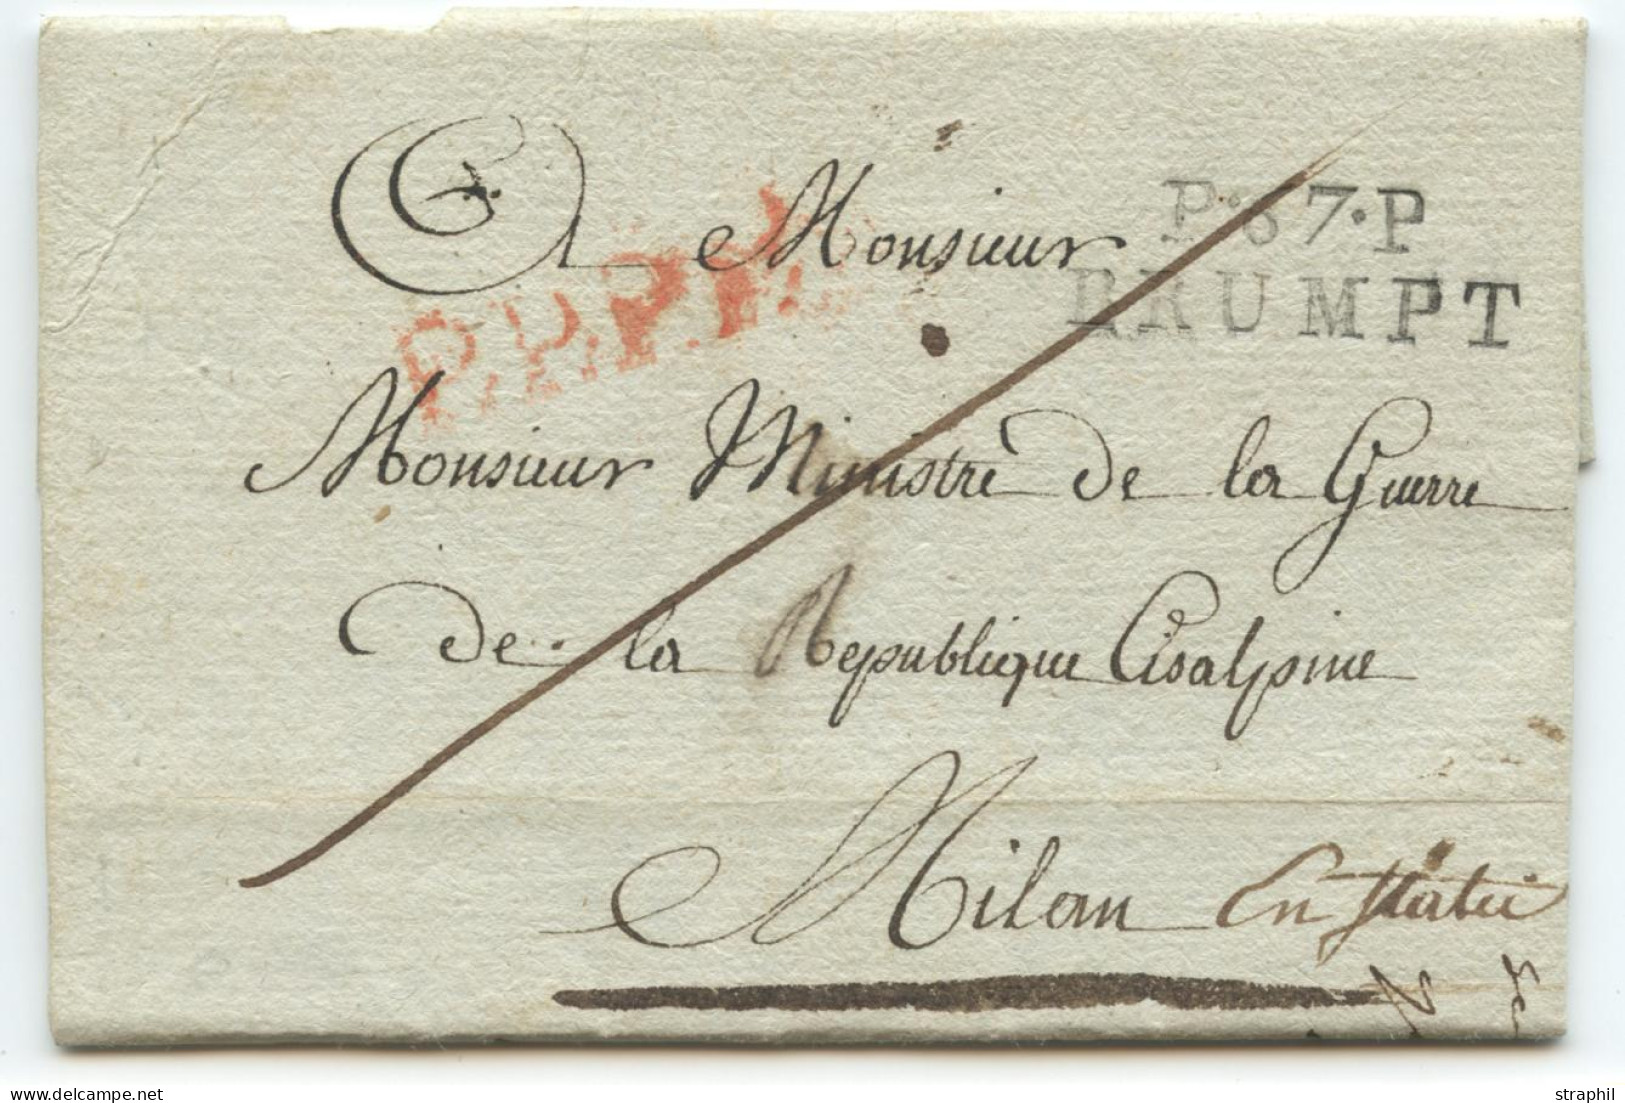 A Monsieur
P.67.P
BRUMPT
P.P.P.P.
Monsieur Ministre de la Guerre
de la Republique Cisalpine
Milan En Italie
straphil